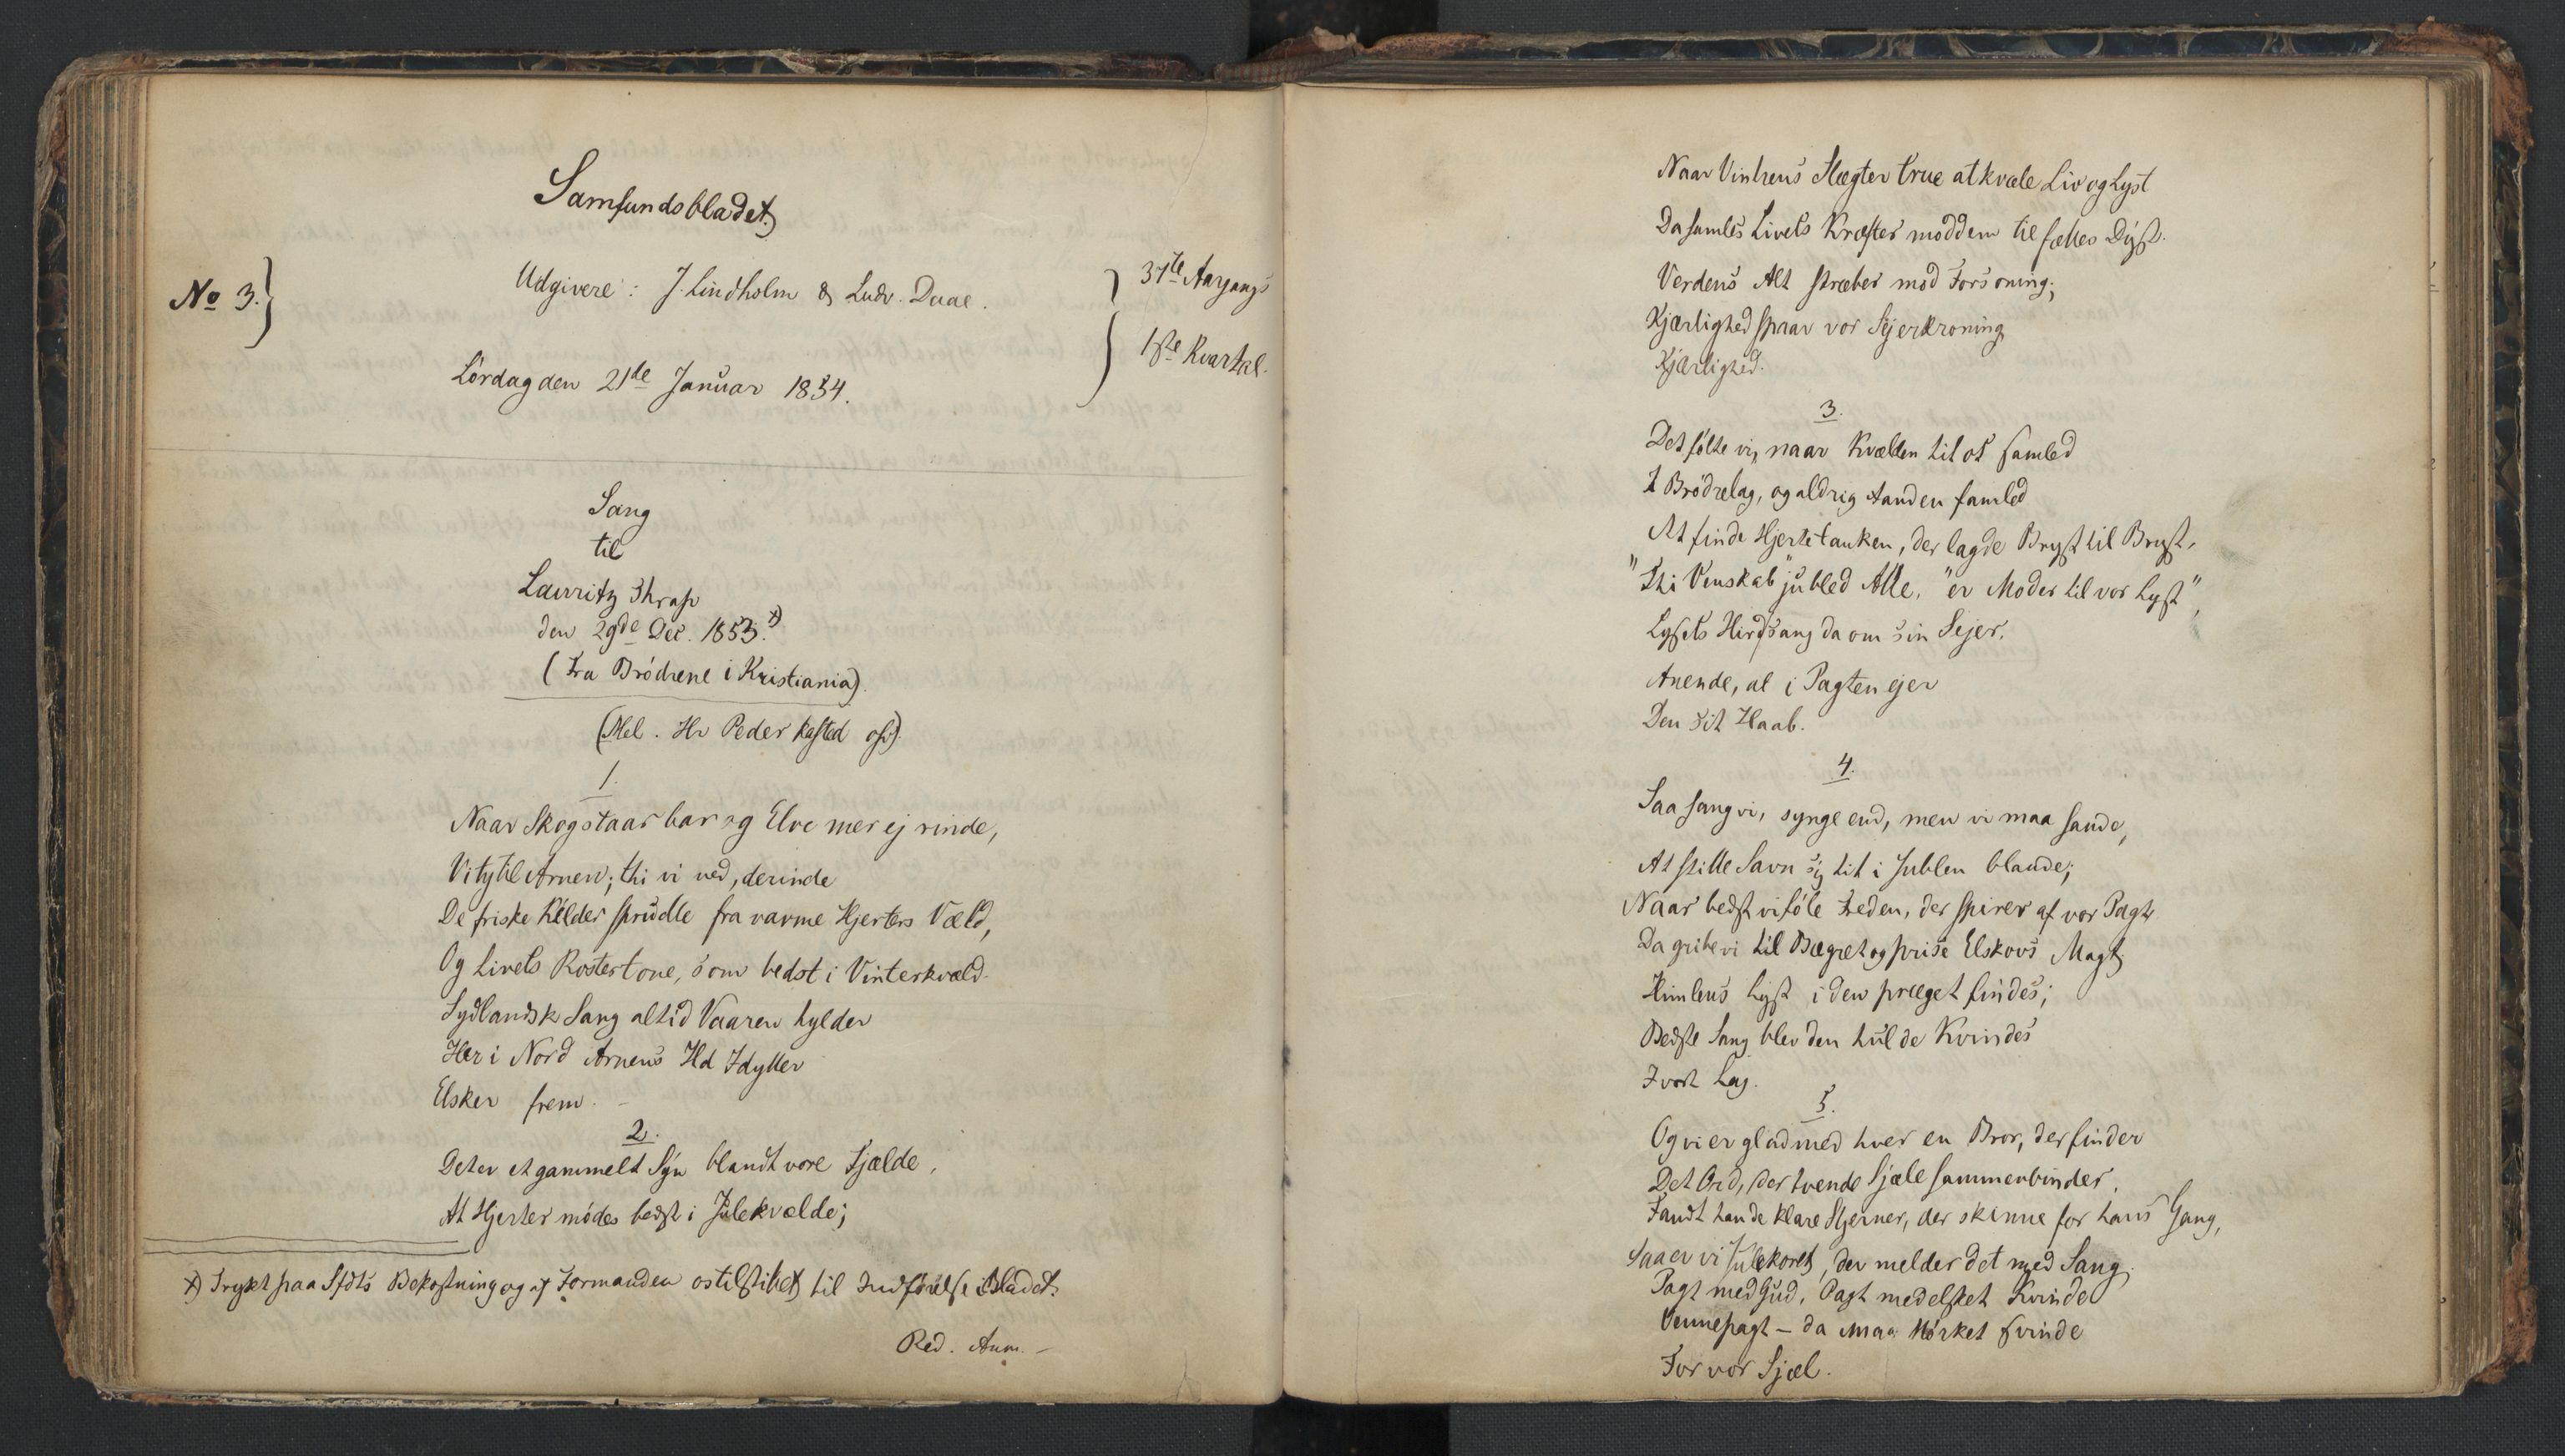 Samfundsbladet.
No 3.}
Udgivere: J. Lindholm & Ludv. Daae.
37te Aargangs
1ste Kvartal.
Lördag den 21de Januar 1854.
Sang
til
Lauritz Thrap
den 29de Dec. 1853.*)
(Fra Brödrene i Kristiania).
(Mel. Hr Peder kasted osv).
1.
Naar Skog staar bar og Elve mer ej rinde,
Vi ty til Arnen; thi vi ved, derinde
De friske Kilder sprudle fra varme Hjerters Væld,
Og Livets Röster tone, som bedst i Vinterkvæld.
Sydlandsk Sang altid Vaaren hylder
Her i Nord Arnens Ild Idyller
Elsker frem. –
2.
Det er et gammelt Syn blandt vore Fjælde,
At Hjerter mödes bedst i Julekvælde;
*) Trykt paa Sfdts Bekostning og af Formanden os tilstillet til Indförelse i Bladet.
Red. Anm. –
Naar Vintrens Magter true at kvæle Liv og Lyst
Da samles Livets Kræfter mod dem til fælles Dyst.
Verdens Alt stræber mod Forsoning;
Kjærlighed spaar vor Sejerkroning,
Kjærlighed.
3.
Det fölte vi, naar Kvælden tit os samled
I Brödrelag, og aldrig Aanden famled
At finde Hjertetanken, der lagde Bryst til Bryst,
"Thi Venskab" jubled Alle, "er Moder til vor Lyst",
Lysets Hird sang da om sin Sejer,
Anende, at i Pagten ejer
Den sit Haab.
4.
Saa sang vi, synge end, men vi maa sande,
At stille Savn sig tit i Jublen blande;
Naar bedst vi föle Freden, der spirer af vor Pagt,
Da gribe vi til Bægret og prise Elskovs Magt,
Himlens Lyst i den præget findes;
Bedste Sang blev den hulde Kvindes
I vort Lag.
5.
Og vi er glad med hver en Bror, der finder
Det Ord, der tvende Sjæle sammenbinder,
Fandt han de klare Stjerner, der skinne for hans Gang,
Saa er vi Julekoret, der melder det med Sang,
Pagt med Gud, Pagt med elsket Kvinde
Vennepagt – da maa Mörket svinde
For vor Sjæl.